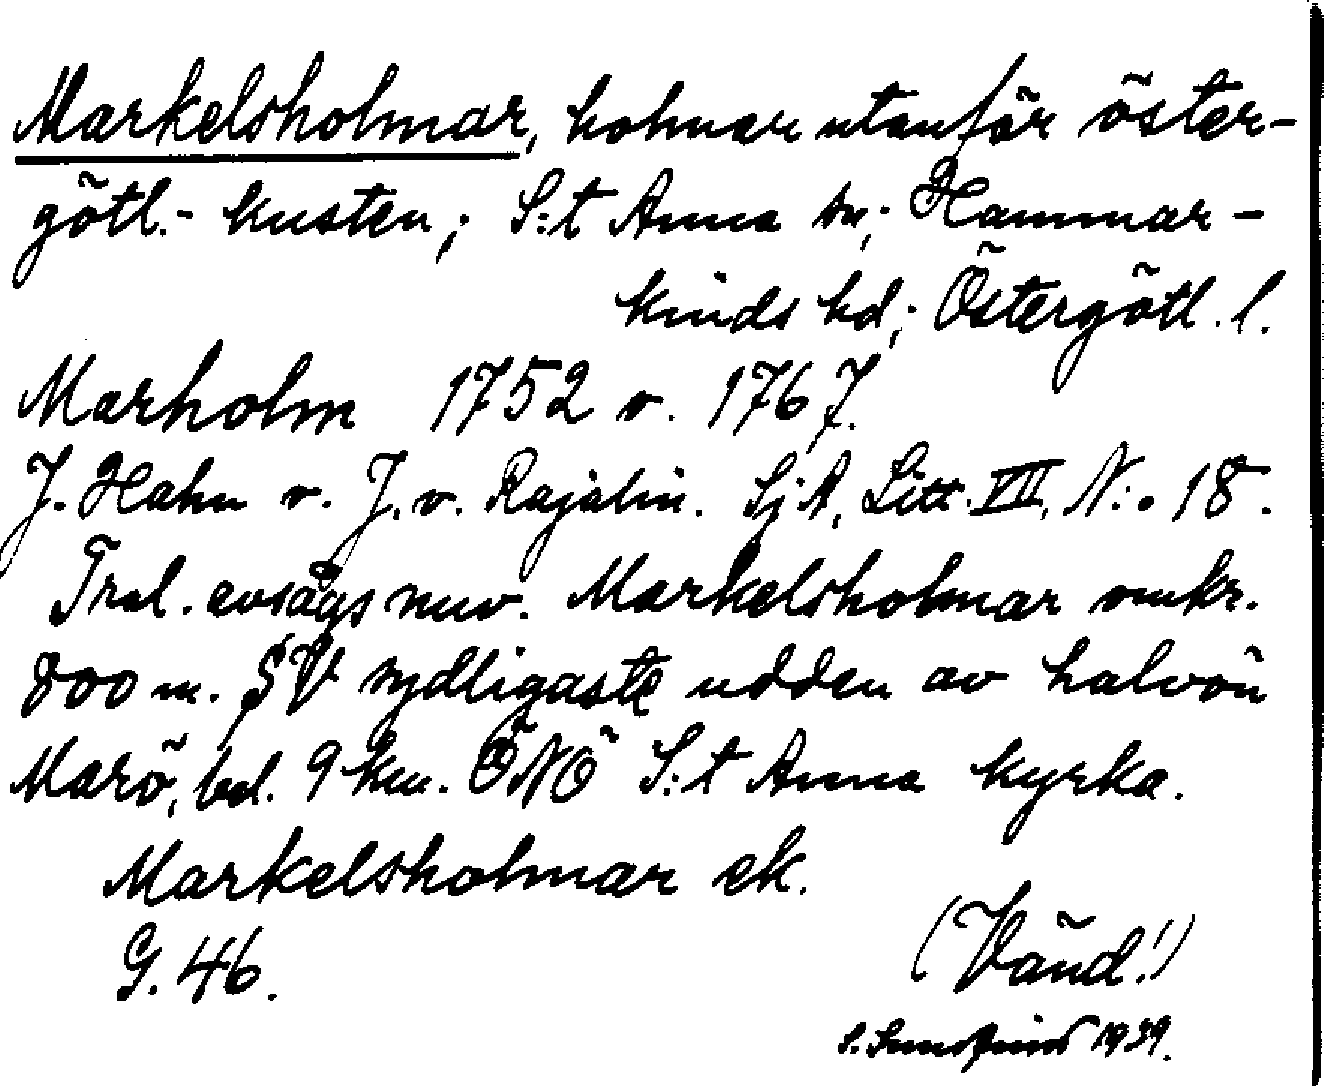 Markelsholmar, holmar utanför öster-
götl.- kusten; S:t Anna sn; Hammar-
kinds hd; Östergötl. l.
Marholm 1752 o. 1767.
J. Hahn o. J. v. Rajalin. SjA, Litt. VIII, N:o 18.
Trol. avsågs nuv. Markelsholmar omkr.
800 m. SV sydligaste udden av halvön
Marö, bel. 9 km. ÖNÖ S:t Anna kyrka.
Markelsholmar ek.
G. 46.
(Vänd!)
S. 1939.